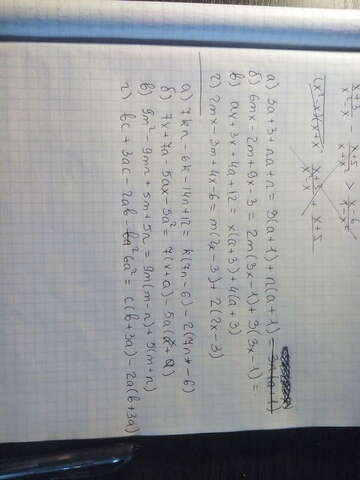 x+3/x²-x - x+5/x+x² > x-6/1-x²
(x²-x)(x+x x+3/x²-x + x+5
а) 3a+3+na+n=3(a+1)+n(a+1)=3n(a+1)
б) 6mx-2m+9x-3=2m(3x-1)+3(3x-1)=
в) ax+3x+4a+12=x(a+3)+4(a+3)
г) 2mx-3m+4x-6=m(2x-3)+2(2x-3)
а) 7kn-6k-14n+12=k(7n-6)-2(7n-6)
б) 7x+7a-5ax-5a²=7(x+a)-5a(x+a)
в) 9m²-9mn+5m+5n=9m(m-n)+5(m+n)
г) bc+3ac-2ab-6a²=c(b+3a)-2a(b+3a)